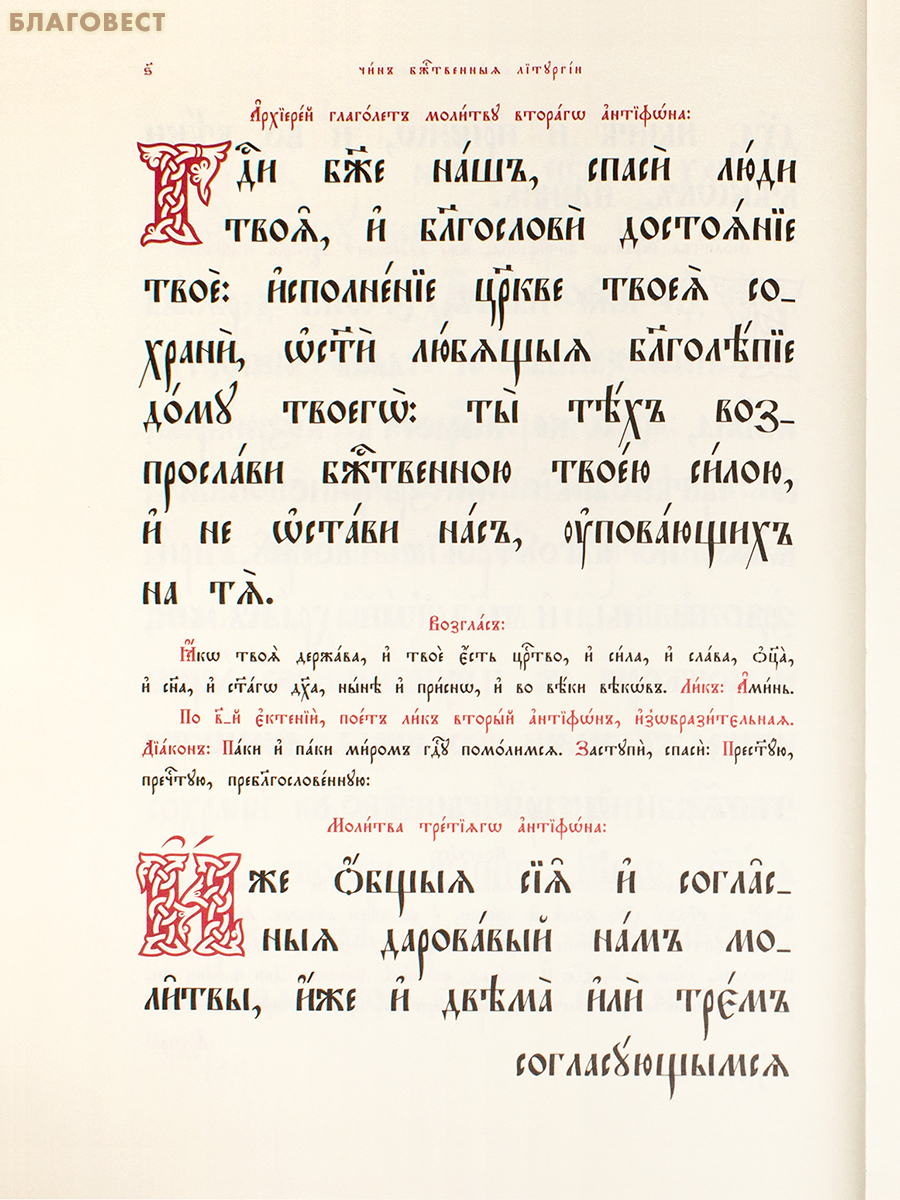 БЛАГОВЕСТ
ѕ҃ чи́нъ бж҃е́ственныѧ літꙋргі́и
А҆рхїере́й глаго́летъ моли́твꙋ втора́гѡ а҆нтїфѡ́на:
Гдⷭ҇и бж҃е на́шъ, спасѝ лю́ди
твоѧ̑, и҆ блгⷭ҇ловѝ достоѧ́нїе
твоѐ: и҆сполне́нїе цр҃кве твоеѧ̀ со_
хранѝ, ѡ҆ст҃ѝ лю́бѧщыѧ бл҃голѣ́пїе
до́мꙋ твоегѡ̀: ты̀ тѣ́хъ воз_
просла́ви бжⷭ҇твенною твое́ю си́лою,
и҆ не ѡ҆ста́ви на́съ, ᲂу҆пова́ющихъ
на тѧ̀.
Возгла́съ:
Ꙗ҆́кѡ твоѧ̀ держа́ва, и҆ твоѐ є҆́сть црⷭ҇тво, и҆ си́ла, и҆ сла́ва, ѻ҆ц҃а̀,
и҆ сн҃а, и҆ ст҃а́гѡ дх҃а, ны́нѣ и҆ при́снѡ, и҆ во вѣ́ки вѣкѡ́въ. Ли́къ: А҆ми́нь.
По в҃_й є҆ктенїѝ, пое́тъ ли́къ вторы́й а҆нтїфѡ́нъ, и҆зѡбрази́тєльнаѧ.
Дїа́конъ: Па́ки и҆ па́ки ми́ромъ гдⷭ҇ꙋ помо́лимсѧ. Застꙋпѝ, спасѝ: Прест҃ꙋ́ю,
пречⷭ҇тꙋю, пребл҃гослове́ннꙋю:
Моли́тва тре́тїѧгѡ а҆нтїфѡ́на:
И҆́же ѻ҆́бщыѧ сїѧ̑ и҆ согла̑с_
ныѧ дарова́вый на́мъ мо_
ли̑твы, и҆́же и҆ двѣма̀ и҆лѝ тре́мъ
согласꙋ́ющымсѧ